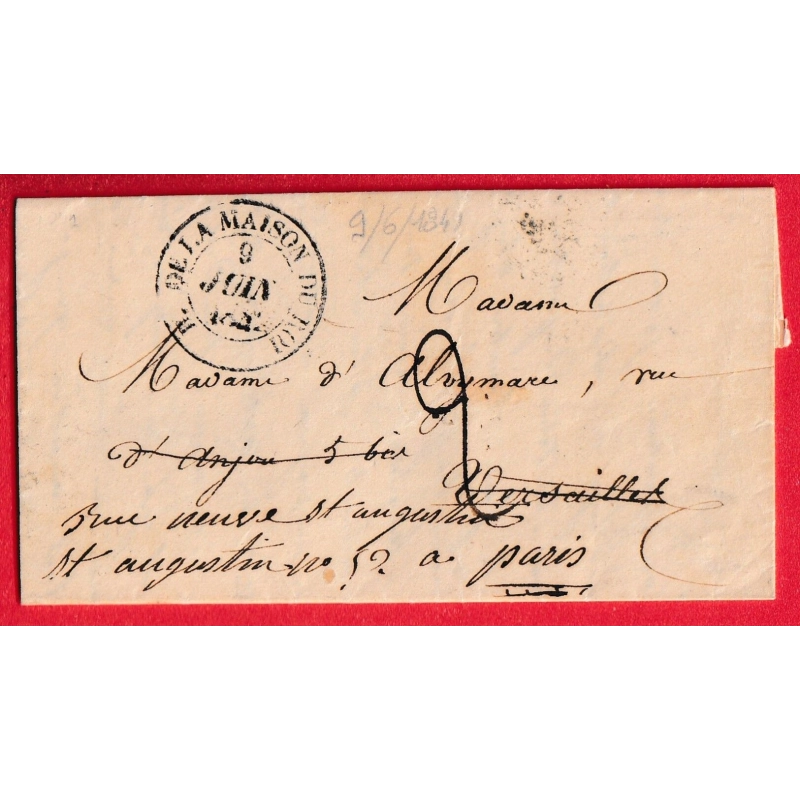 B. DE LA MAISON DU ROI
9
JUIN
9/6/1841
Madame
Madame d'Alvymare, rue
d'anjou 5 bis
Versailles
2
rue neuve st augustin
st augustin no 52 a paris